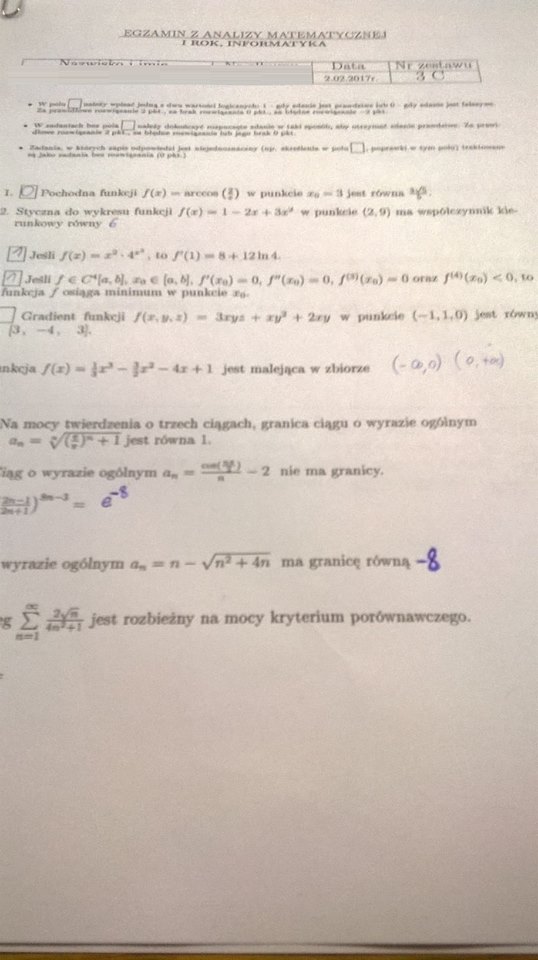 EGZAMIN Z ANALIZY MATEMATYCZNEJ
I ROK, INFORMATYKA
Nazwisko i imię
Data
Nr zestawu
2.02.2017r.
3 C
• W polu □ należy wpisać jedną z dwu wartości logicznych: 1 – gdy zdanie jest prawdziwe lub 0 – gdy zdanie jest fałszywe.
Za prawidłowe rozwiązanie 2 pkt., za brak rozwiązania 0 pkt., za błędne rozwiązanie −2 pkt.
• W zadaniach bez pola □ należy dokończyć rozpoczęte zdanie w taki sposób, aby otrzymać zdanie prawdziwe. Za prawi-
dłowe rozwiązanie 2 pkt., za błędne rozwiązanie lub jego brak 0 pkt.
• Zadania, w których zapis odpowiedzi jest niejednoznaczny (np. skreślenia w polu □, poprawki w tym polu) traktowane
są jako zadania bez rozwiązania (0 pkt.)
1. 0 Pochodna funkcji f(x) = arccos in punkcie x₀ = 3 jest równa
2. Styczna do wykresu funkcji f(x) = 1 − 2x + 3x² w punkcie (2, 9) ma współczynnik kie-
runkowy równy 6
1 Jeśli to f'(1) = 8 + 12 ln 4.
1 Jeśli f ∈ C⁴[a, b], x₀ ∈ [a, b], f'(x₀) = 0, f''(x₀) = 0, f⁽³⁾(x₀) = 0 oraz f⁽⁴⁾(x₀) < 0, to
funkcja f osiąga minimum w punkcie x₀.
Gradient funkcji f(x, y, z) = 3xyz + xy² + 2xy w punkcie (−1, 1, 0) jest równy
[3, −4, 3].
nkcja f(x) = ⅓x³ − 3/2x² − 4x + 1 jest malejąca w zbiorze (-∞,0) (0,+∞)
Na mocy twierdzenia o trzech ciągach, granica ciągu o wyrazie ogólnym
jest równa 1.
iąg o wyrazie ogólnym − 2 nie ma granicy.
(2n−1/2n+1)⁸ⁿ⁻³ = e⁻⁸
wyrazie ogólnym aₙ = n − √(n² + 4n) ma granicę równą -8
eg ∑ n=1 ∞ jest rozbieżny na mocy kryterium porównawczego.